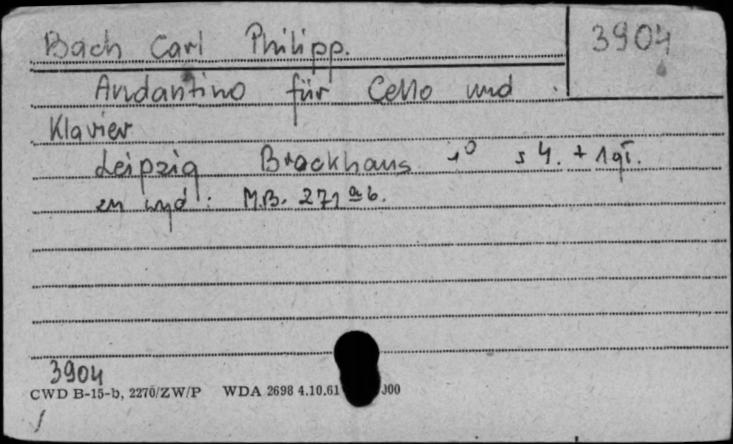 Bach Carl Philipp. 3904
Andantino für Cello und
Klavier
Leipzig Brockhaus s 4. + 1 gł.
zn wyd: M.B. 271 a b.
3904
CWD B-15-b, 2270/ZW/P WDA 2698 4.10.61 000